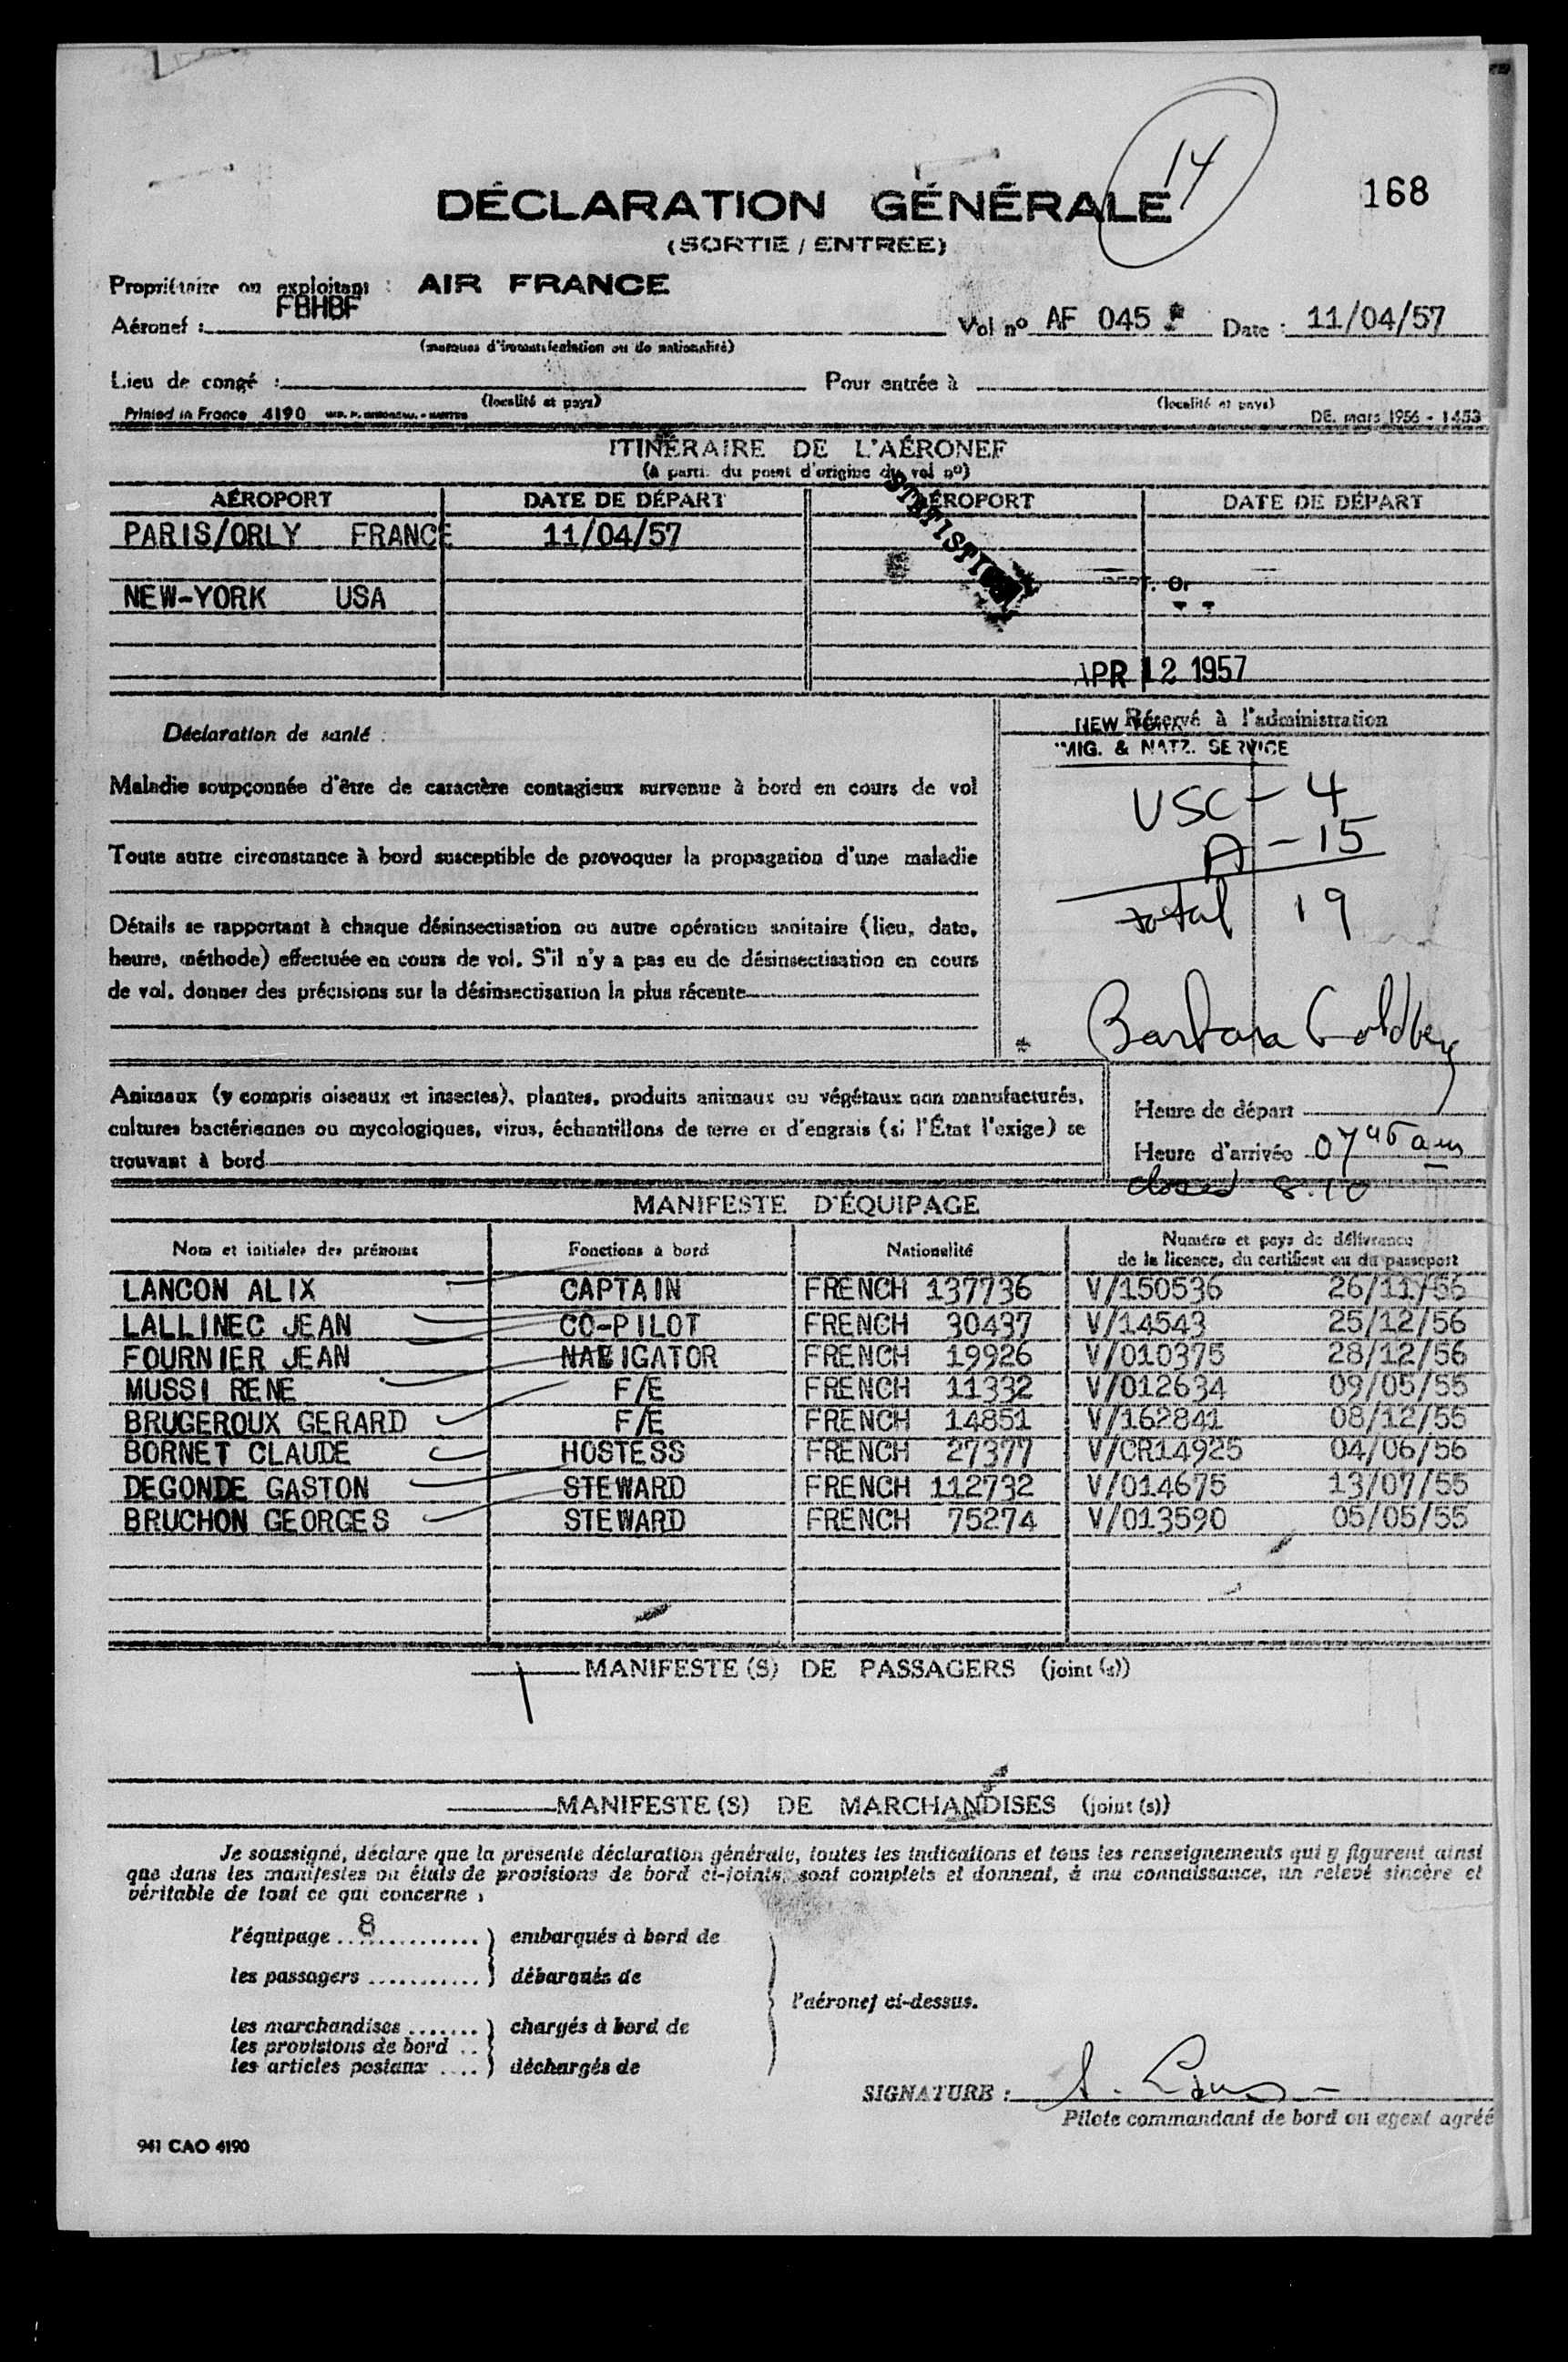 14
168
DÉCLARATION GÉNÉRALE
(SORTIE / ENTREE)
Propriétaire ou exploitant : AIR FRANCE
Aéronef : FBHBF Vol nº AF 045 Date : 11/04/57
(marques d'immatriculation ou de nationalité)
Lieu de congé : Pour entrée à
(localité et pays) (localité et pays)
Printed in France 4190 DE. mars 1956 - 1453
ITINÉRAIRE DE L'AÉRONEF
(à parti. du point d'origine du vol nº)
AÉROPORT DATE DE DÉPART AÉROPORT DATE DE DÉPART
PARIS/ORLY FRANCE 11/04/57
STATISTICAL
NEW-YORK USA
APR 12 1957
Déclaration de santé :
Réservé à l'administration
NEW YORK
IMIG. & NATZ. SERVICE
Maladie soupçonnée d'être de caractère contagieux survenue à bord en cours de vol
USC - 4
A - 15
total 19
Toute autre circonstance à bord susceptible de provoquer la propagation d'une maladie
Détails se rapportant à chaque désinsectisation ou autre opération sanitaire (lieu, date,
heure, méthode) effectuée en cours de vol. S'il n'y a pas eu de désinsectisation en cours
de vol, donner des précisions sur la désinsectisation la plus récente
* Barbara Goldberg
Animaux (y compris oiseaux et insectes), plantes, produits animaux ou végétaux non manufacturés,
cultures bactériennes ou mycologiques, virus, échantillons de terre et d'engrais (si l'État l'exige) se
trouvant à bord
Heure de départ
Heure d'arrivée 0745 am
closed 8:10
MANIFESTE D'ÉQUIPAGE
Nom et initiales des prénoms Fonctions à bord Nationalité Numéro et pays de délivrance
de la licence, du certificat ou du passeport
LANCON ALIX CAPTAIN FRENCH 137736 V/150536 26/11/56
LALLINEC JEAN CO-PILOT FRENCH 30437 V/14543 25/12/56
FOURNIER JEAN NAVIGATOR FRENCH 19926 V/010375 28/12/56
MUSSI RENE F/E FRENCH 11332 V/012634 09/05/55
BRUGEROUX GERARD F/E FRENCH 14851 V/162841 08/12/55
BORNET CLAUDE HOSTESS FRENCH 27377 V/CR14925 04/06/56
DEGONDE GASTON STEWARD FRENCH 112732 V/014675 13/07/55
BRUCHON GEORGES STEWARD FRENCH 75274 V/013590 05/05/55
MANIFESTE (S) DE PASSAGERS (joint (s))
MANIFESTE (S) DE MARCHANDISES (joint (s))
Je soussigné, déclare que la présente déclaration générale, toutes les indications et tous les renseignements qui y figurent ainsi
que dans les manifestes ou états de provisions de bord ci-joints, sont complets et donnent, à ma connaissance, un relevé sincère et
véritable de tout ce qui concerne :
l'équipage 8 ) embarqués à bord de
les passagers ) débarqués de
l'aéronef ci-dessus.
les marchandises ) chargés à bord de
les provisions de bord
les articles postaux ) déchargés de
SIGNATURE :
Pilote commandant de bord ou agent agréé
941 CAO 4190